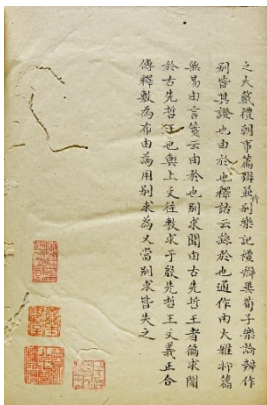 之大戴禮朝事篇辨並作别樂記禮辨異荀子樂論辨作
别皆其證也由於也釋詁云繇於也通作由大雅抑篇
無易由言箋云由於也别求聞由古先哲王者徧求聞
於古先哲王也與上文往敷求于殷先哲王文義正合
傳釋敷為布由為用别求為又當别求皆失之